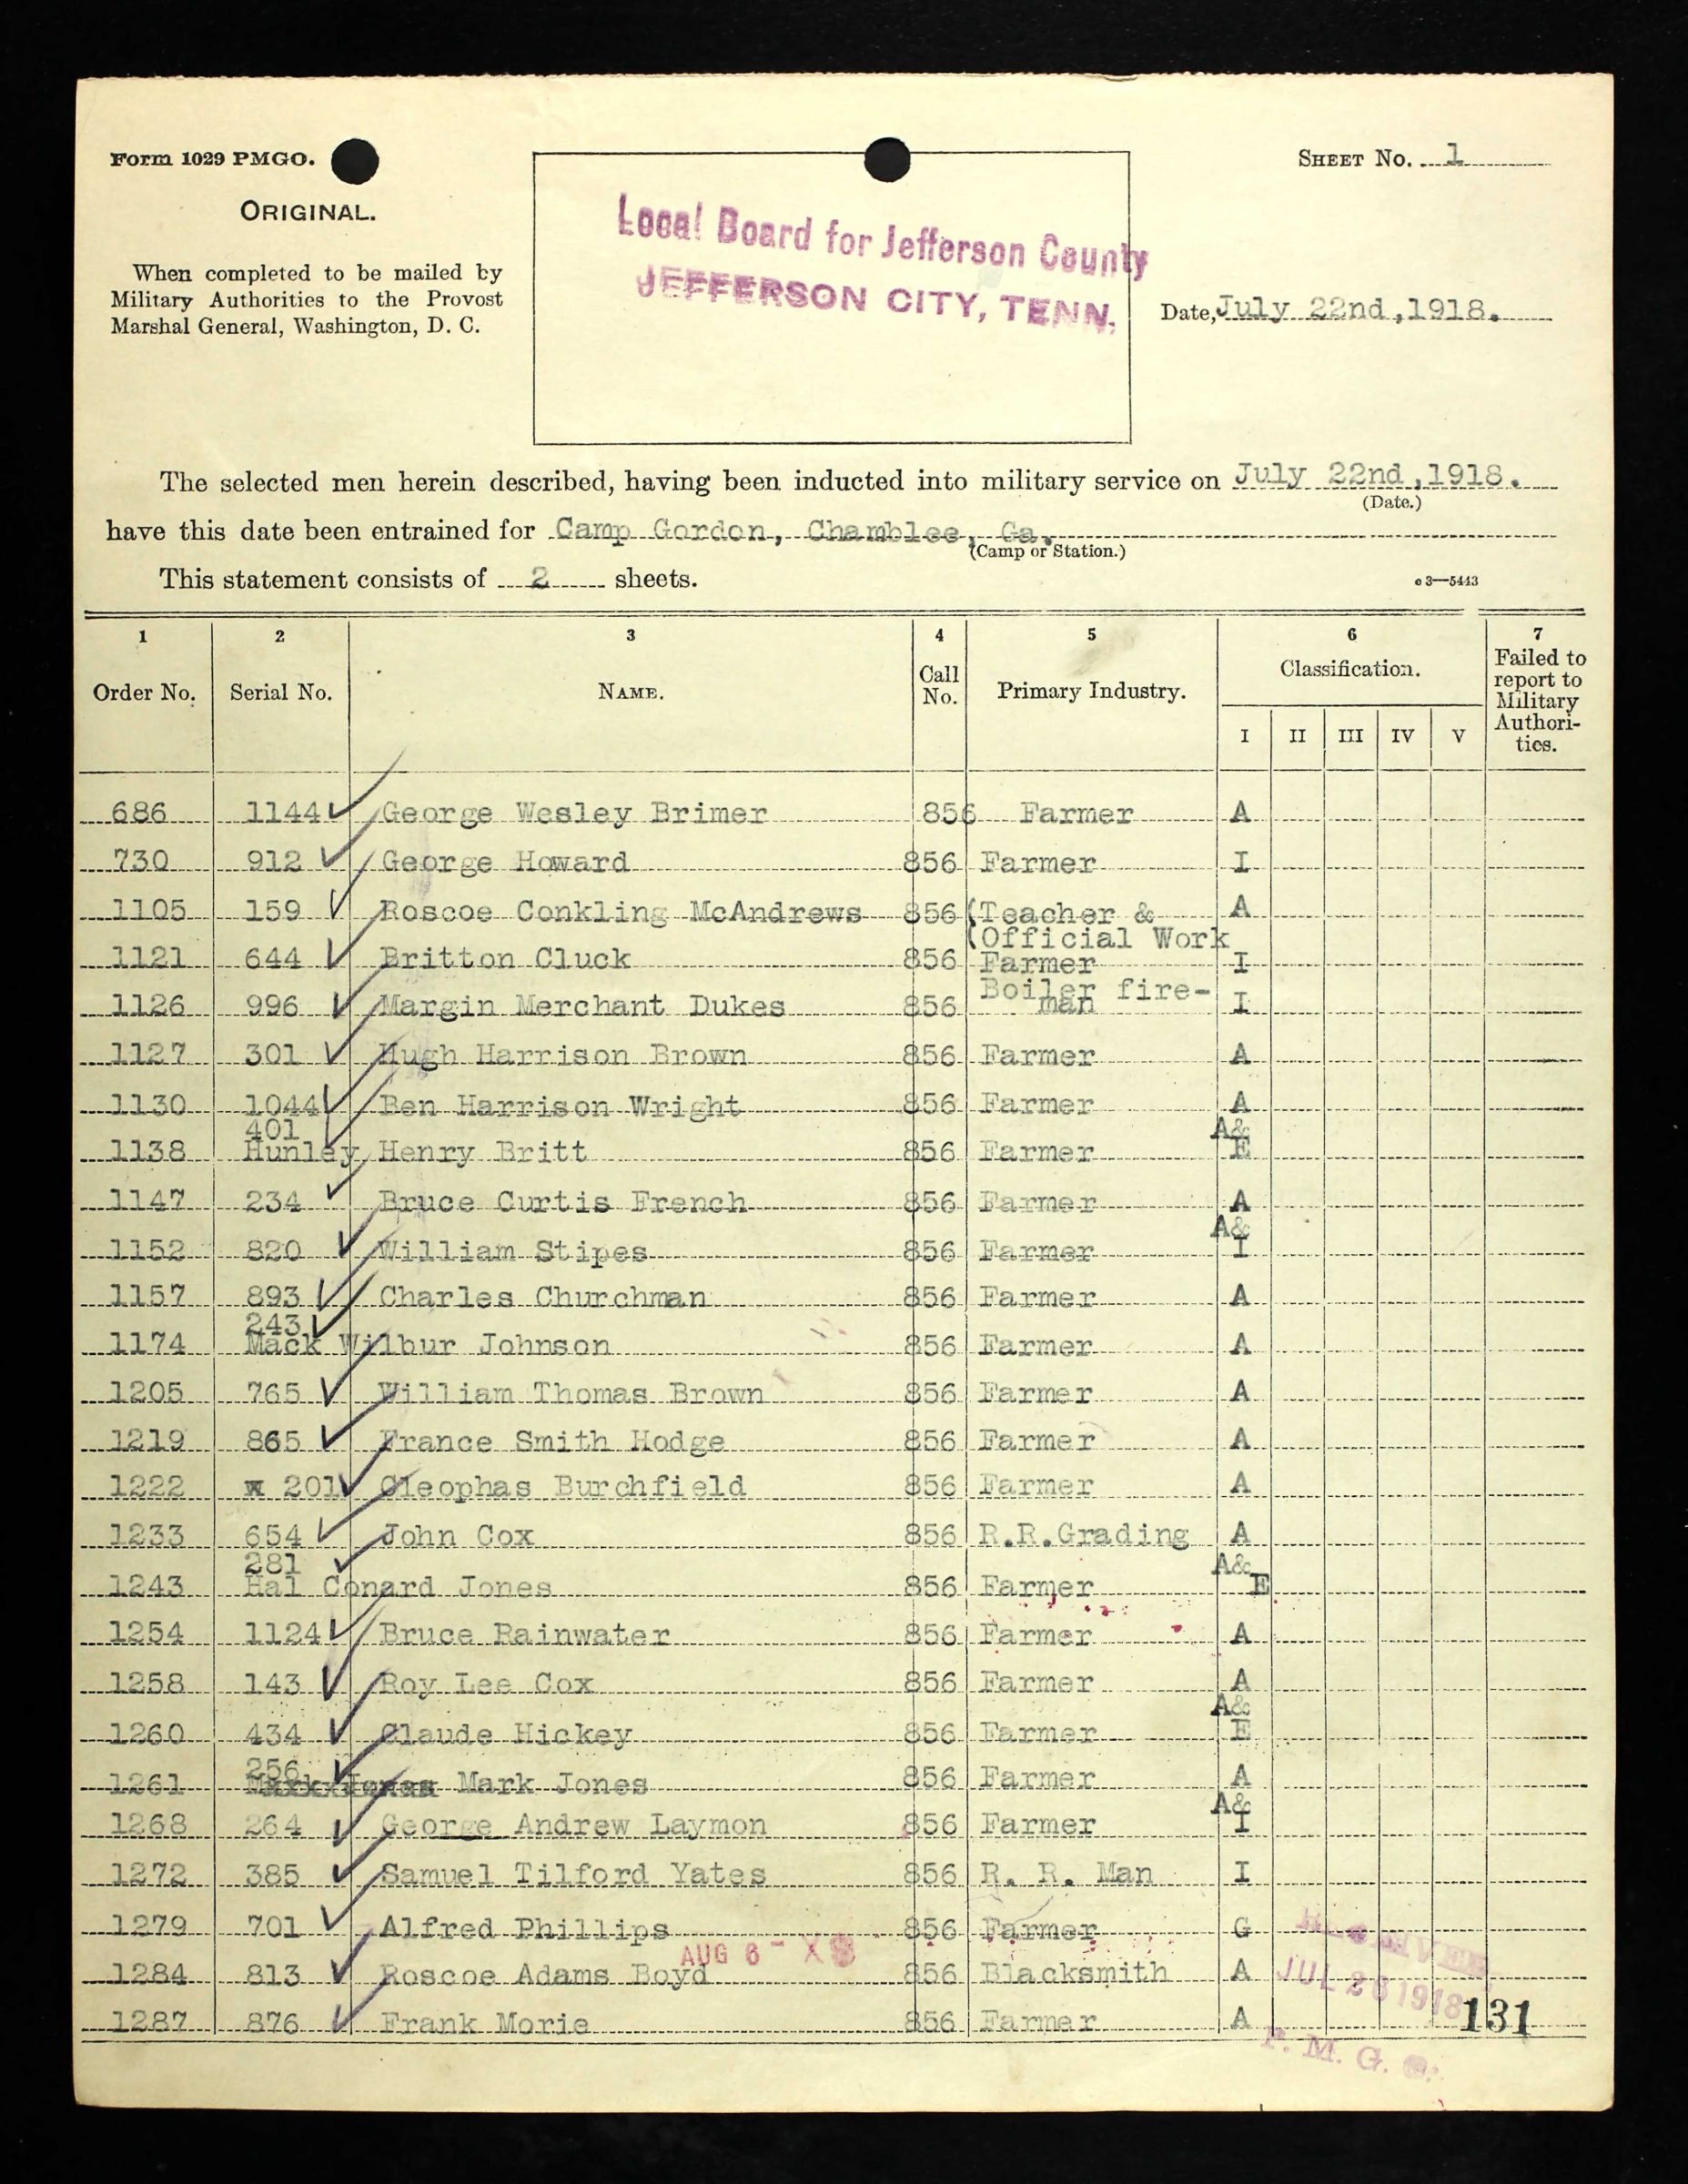 Form 1029 PMGO.
ORIGINAL.
When completed to be mailed by
Military Authorities to the Provost
Marshal General, Washington, D. C.
Local Board for Jefferson County
JEFFERSON CITY, TENN.
SHEET No. 1
Date, July 22nd,1918.
The selected men herein described, having been inducted into military service on July 22nd,1918.
(Date.)
have this date been entrained for Camp Gordon, Chamblee, Ga.
(Camp or Station.)
This statement consists of 2 sheets.
c3—5443
1 2 3 4 5 6 7
Order No. Serial No. NAME. Call No. Primary Industry. Classification. Failed to report to Military Authorities.
I II III IV V
686 1144 George Wesley Brimer 856 Farmer A
730 912 George Howard 856 Farmer I
1105 159 Roscoe Conkling McAndrews 856 (Teacher & A
(Official Work
1121 644 Britton Cluck 856 Farmer I
1126 996 Margin Merchant Dukes 856 Boiler fire-man I
1127 301 Hugh Harrison Brown 856 Farmer A
1130 1044 Ben Harrison Wright 856 Farmer A
1138 401 Hunley Henry Britt 856 Farmer A& E
1147 234 Bruce Curtis French 856 Farmer A
1152 820 William Stipes 856 Farmer A& I
1157 893 Charles Churchman 856 Farmer A
1174 243 Mack Wilbur Johnson 856 Farmer A
1205 765 William Thomas Brown 856 Farmer A
1219 865 France Smith Hodge 856 Farmer A
1222 x 201 Cleophas Burchfield 856 Farmer A
1233 654 John Cox 856 R.R.Grading A
1243 281 Hal Conard Jones 856 Farmer A& E
1254 1124 Bruce Rainwater 856 Farmer A
1258 143 Roy Lee Cox 856 Farmer A
1260 434 Claude Hickey 856 Farmer A& E
1261 256 Mark Jones 856 Farmer A
1268 264 George Andrew Laymon 856 Farmer A& I
1272 385 Samuel Tilford Yates 856 R. R. Man I
1279 701 Alfred Phillips 856 Farmer G
AUG 6 -
1284 813 Roscoe Adams Boyd 856 Blacksmith A
JUL 26 1918
1287 876 Frank Morie 856 Farmer A
131
P. M. G. O.